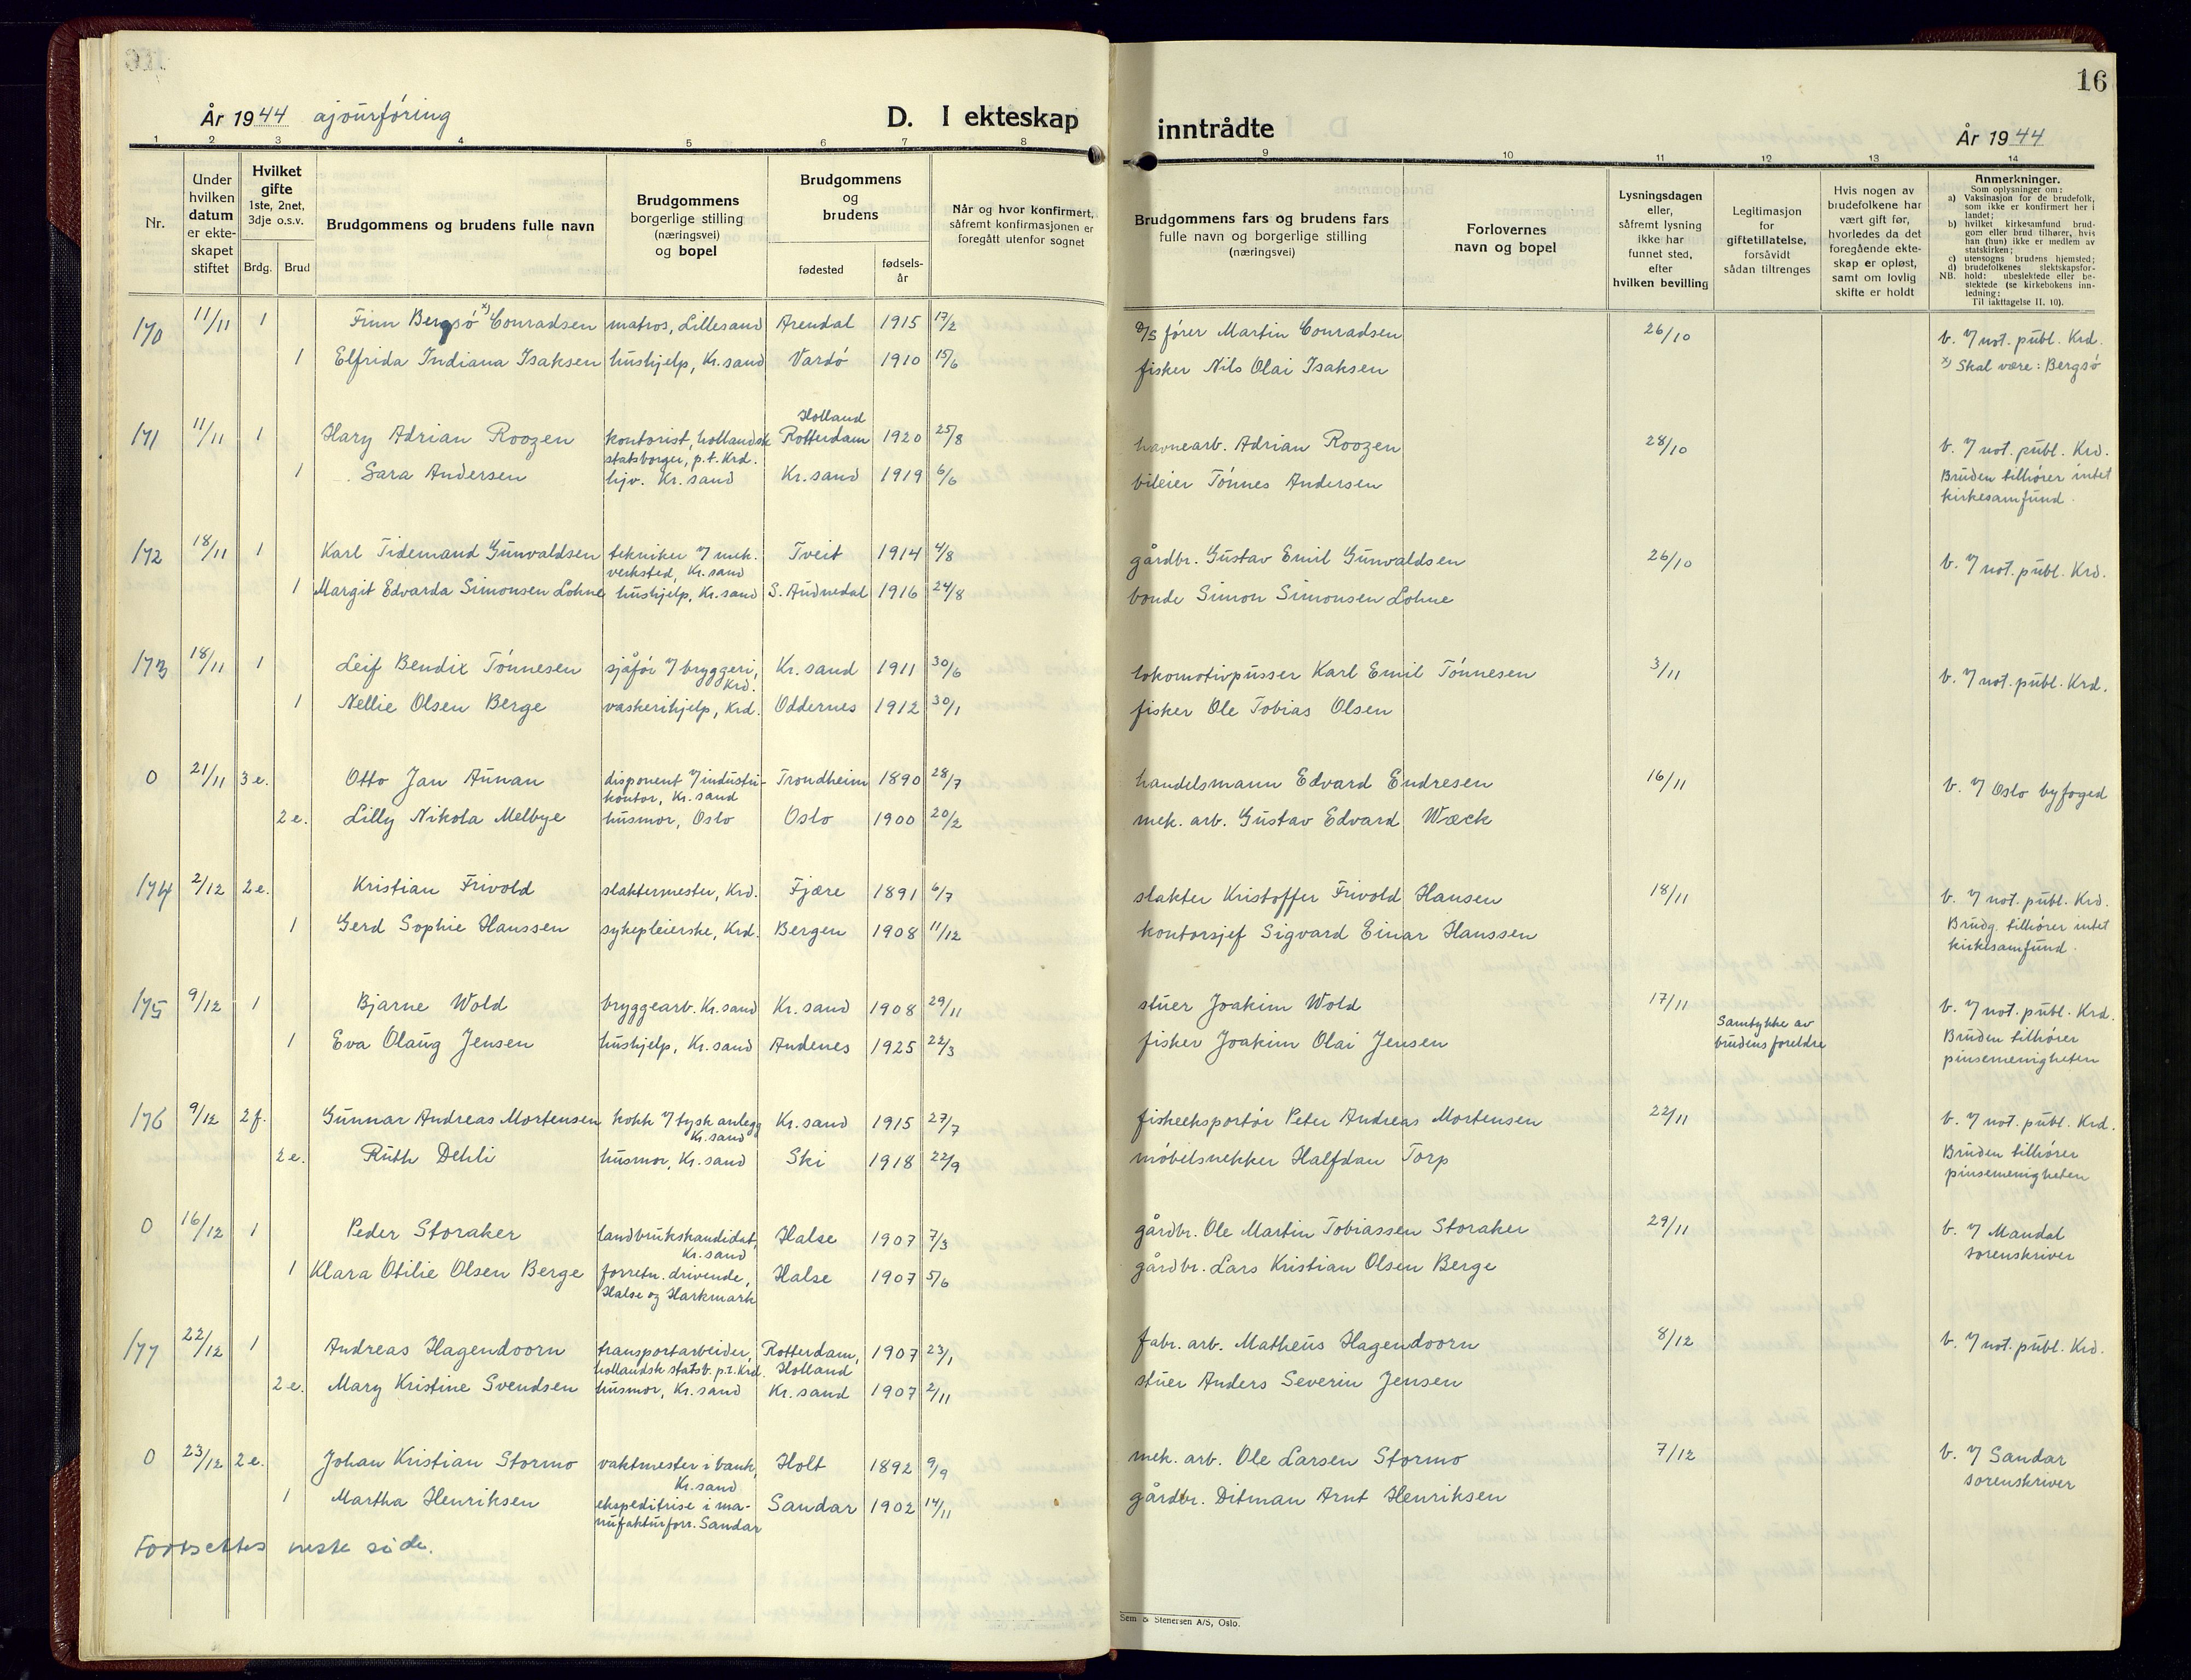 År 1944 ajourföring D. I ekteskap
inntrådte År 1944
16
1 2 3 4 5 6 7 8
9 10 11 12 13 14
Nr.
Under hvilken datum er ekte-skapet stiftet
Hvilket gifte 1ste, 2net, 3dje o.s.v.
Brdg. Brud
Brudgommens og brudens fulle navn
Brudgommens borgerlige stilling (næringsvei) og bopel
Brudgommens og brudens
fødested fødsels-år
Når og hvor konfirmert, såfremt konfirmasjonen er foregått utenfor sognet
Brudgommens fars og brudens fars fulle navn og borgerlige stilling (næringsvei)
Forlovernes navn og bopel
Lysningsdagen eller, såfremt lysning ikke har funnet sted, efter hvilken bevilling
Legitimasjon for giftetillatelse, forsåvidt sådan tiltrenges
Hvis nogen av brudefolkene har vært gift før, hvorledes da det foregående ekte-skap er opløst, samt om lovlig skifte er holdt
Anmerkninger.
Som oplysninger om:
a) Vaksinasjon for de brudefolk, som ikke er konfirmert her i landet;
b) hvilket kirkesamfund brud-gom eller brud tilhører, hvis han (hun) ikke er medlem av statskirken;
c) utensogns brudens hjemsted;
d) brudefolkenes slektskapsfor-hold: ubeslektede eller be-slektede (se kirkebokens inn-ledning:
NB. Til iakttagelse II. 10).
170 11/11 1 Finn Bergsö x) Conradsen matros, Lillesand Arendal 1915 17/2 D/S fører Martin Conradsen 26/10 v. 7 not. publ. Krd.
1 Elfrida Indiana Isaksen hushjelp, Kr.sand Vardö 1910 15/6 fisker Nils Olai Isaksen x) Skal være: Bergsö
171 11/11 1 Hary Adrian Roozen kontorist, hollandsk statsborger, p.t. Krd. Holland Rotterdam 1920 25/8 havnearb. Adrian Roozen 28/10 v. 7 not. publ. Krd.
1 Sara Andersen hjv. Kr.sand Kr.sand 1919 6/6 bileier Tönnes Andersen Bruden tilhører intet kirkesamfund.
172 18/11 1 Karl Tidemand Gunvaldsen tekniker 7 mek. verksted, Kr.sand Tveit 1914 4/8 gårdbr. Gustav Emil Gunvaldsen 26/10 v. 7 not. publ. Krd.
1 Margit Edvarda Simonsen Lohne hushjelp, Kr.sand S. Audnedal 1916 24/8 bonde Simon Simonsen Lohne
173 18/11 1 Leif Bendix Tönnesen sjåför 7 bryggeri, Krd. Kr.sand 1911 30/6 lokomotivpusser Karl Emil Tönnesen 3/11 v. 7 not. publ. Krd.
1 Nellie Olsen Berge vaskerihjelp, Krd. Oddernes 1912 30/1 fisker Ole Tobias Olsen
0 21/11 3 e. Otto Jan Aunan disponent 7 industri-kontor, Kr.sand Trondheim 1890 28/7 handelsmann Edvard Endresen 16/11 v. 7 Oslo byfoged
2 e. Lilly Nikola Melbye husmor, Oslo Oslo 1900 20/2 mek. arb. Gustav Edvard Wæck
174 2/12 2 e. Kristian Frivold slaktermester, Krd. Fjære 1891 6/7 slakter Kristoffer Frivold Hansen 18/11 v. 7 not. publ. Krd.
1 Gerd Sophie Hanssen sykepleierske, Krd. Bergen 1908 11/12 kontorsjef Sigvard Einar Hanssen Brudg. tilhører intet kirkesamfund.
175 9/12 1 Bjarne Wold bryggearb. Kr.sand Kr.sand 1908 29/11 stuer Joakim Wold 17/11 v. 7 not. publ. Krd.
1 Eva Olaug Jensen hushjelp, Kr.sand Andenes 1925 22/3 fisker Joakim Olai Jensen Samtykke av brudens foreldre Bruden tilhører pinsemenigheten
176 9/12 2 f. Gunnar Andreas Mortensen kokk 7 tysk anlegg Kr.sand Kr.sand 1915 27/7 fiskeeksportör Peter Andreas Mortensen 22/11 v. 7 not. publ. Krd.
2 e. Ruth Dehli husmor, Kr.sand Ski 1918 22/9 möbelsnekker Halfdan Torp Bruden tilhører pinsemenigheten
0 16/12 1 Peder Storaker landbrukskandidat, Kr.sand Halse 1907 7/3 gårdbr. Ole Martin Tobiassen Storaker 29/11 v. 7 Mandal sorenskriver
1 Klara Otilie Olsen Berge forretn. drivende, Halse og Harkmark Halse 1907 5/6 gårdbr. Lars Kristian Olsen Berge
177 22/12 1 Andreas Hagendoorn transportarbeider, hollandsk statsb. p.t. Krd. Rotterdam, Holland 1907 23/1 fabr. arb. Matheus Hagendoorn 8/12 v. 7 not. publ. Krd.
2 e. Mary Kristine Svendsen husmor, Kr.sand Kr.sand 1907 2/11 stuer Anders Severin Jensen
0 23/12 2 e. Johan Kristian Stormo vaktmester i bank, Kr.sand Holt 1892 9/9 mek. arb. Ole Larsen Stormo 7/12 v. 7 Sandar sorenskriver
1 Martha Henriksen ekspeditrise i ma-nufakturforr. Sandar Sandar 1902 14/11 gårdbr. Ditman Arnt Henriksen
Fortsettes neste side.
Sem & Stenersen A/S, Oslo.